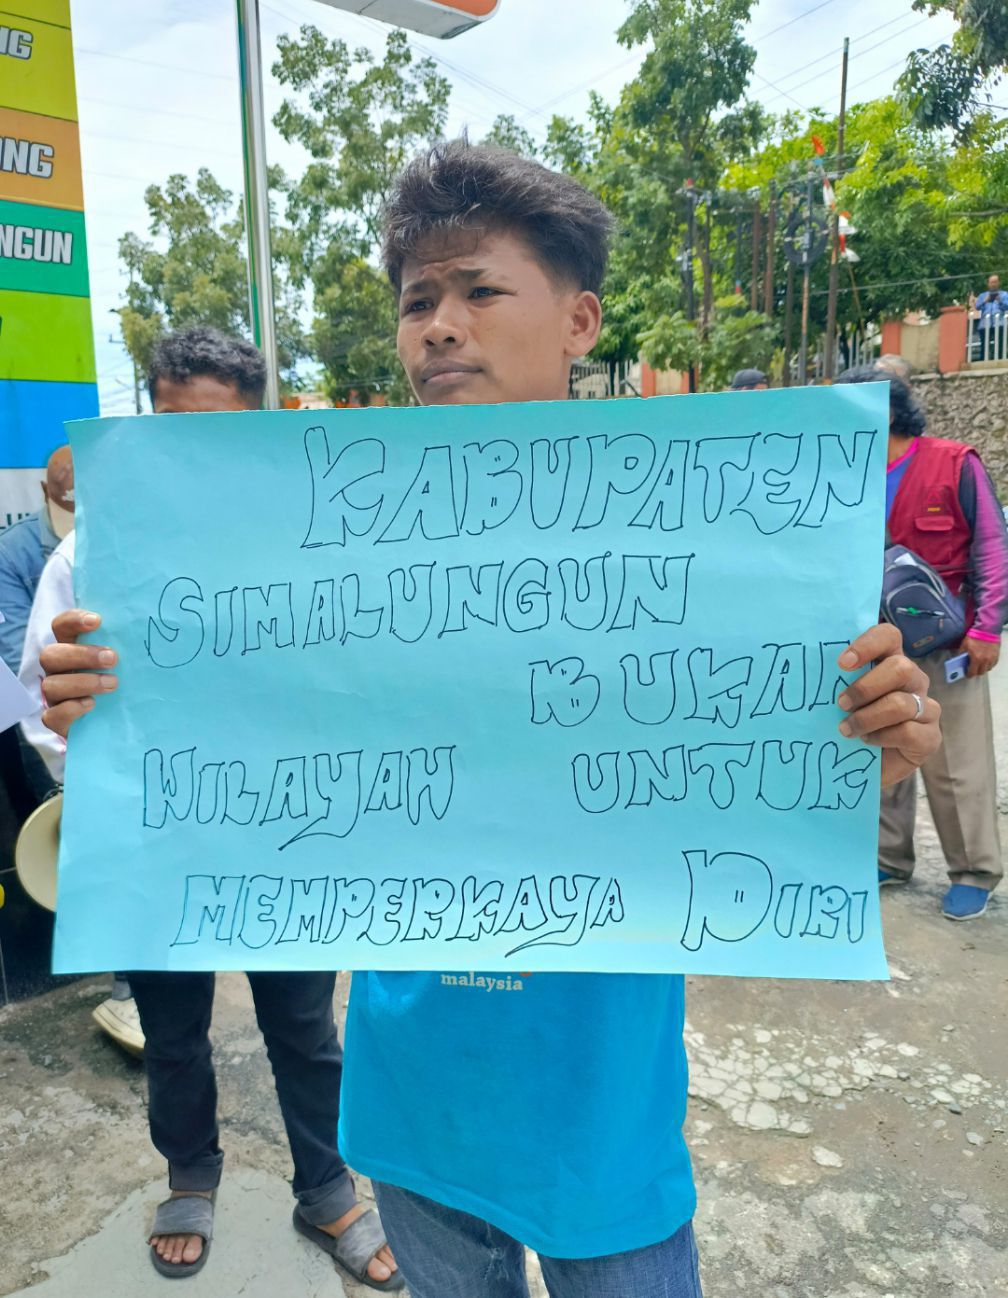 NG
UNG
NGUN
KABUPATEN
SIMALUNGUN
BUKAN
WILAYAH UNTUK
MEMPERKAYA DIRI
malaysia